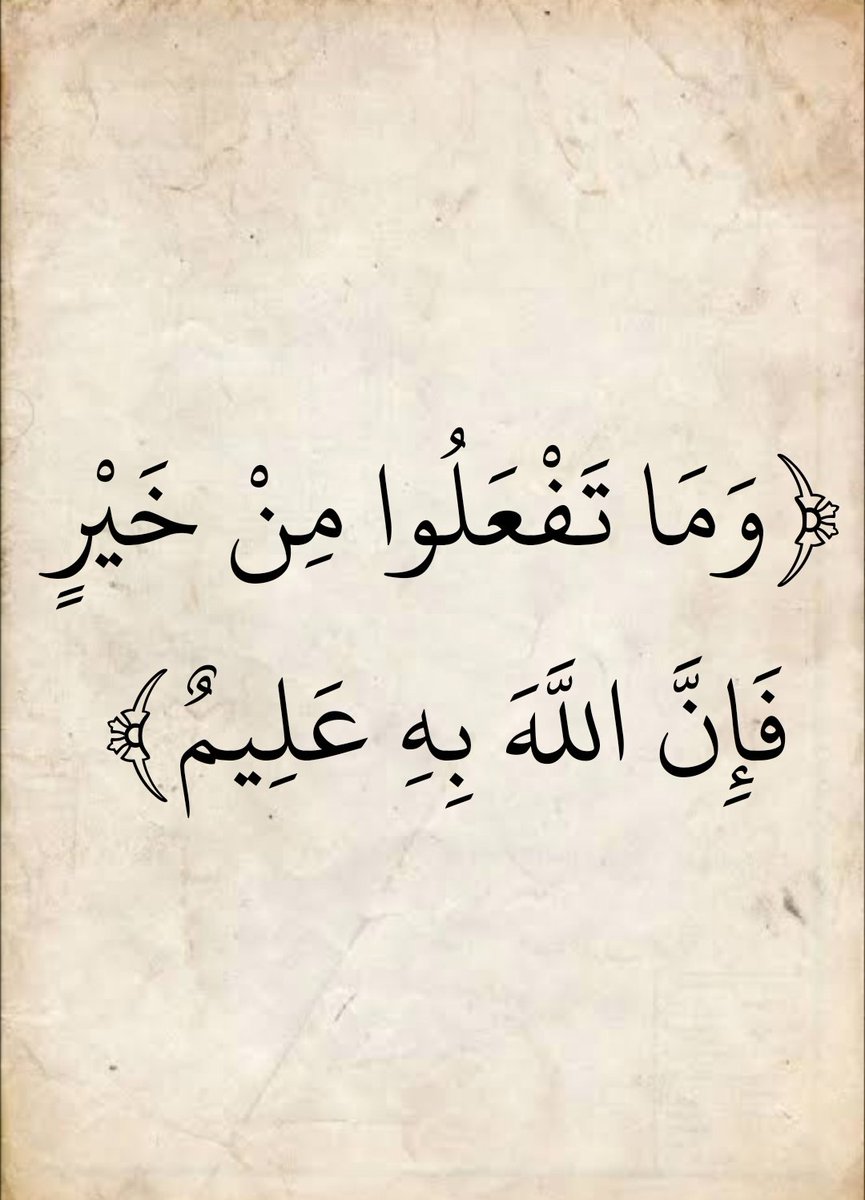 ﴿وَمَا تَفْعَلُوا مِنْ خَيْرٍ
فَإِنَّ اللَّهَ بِهِ عَلِيمٌ﴾